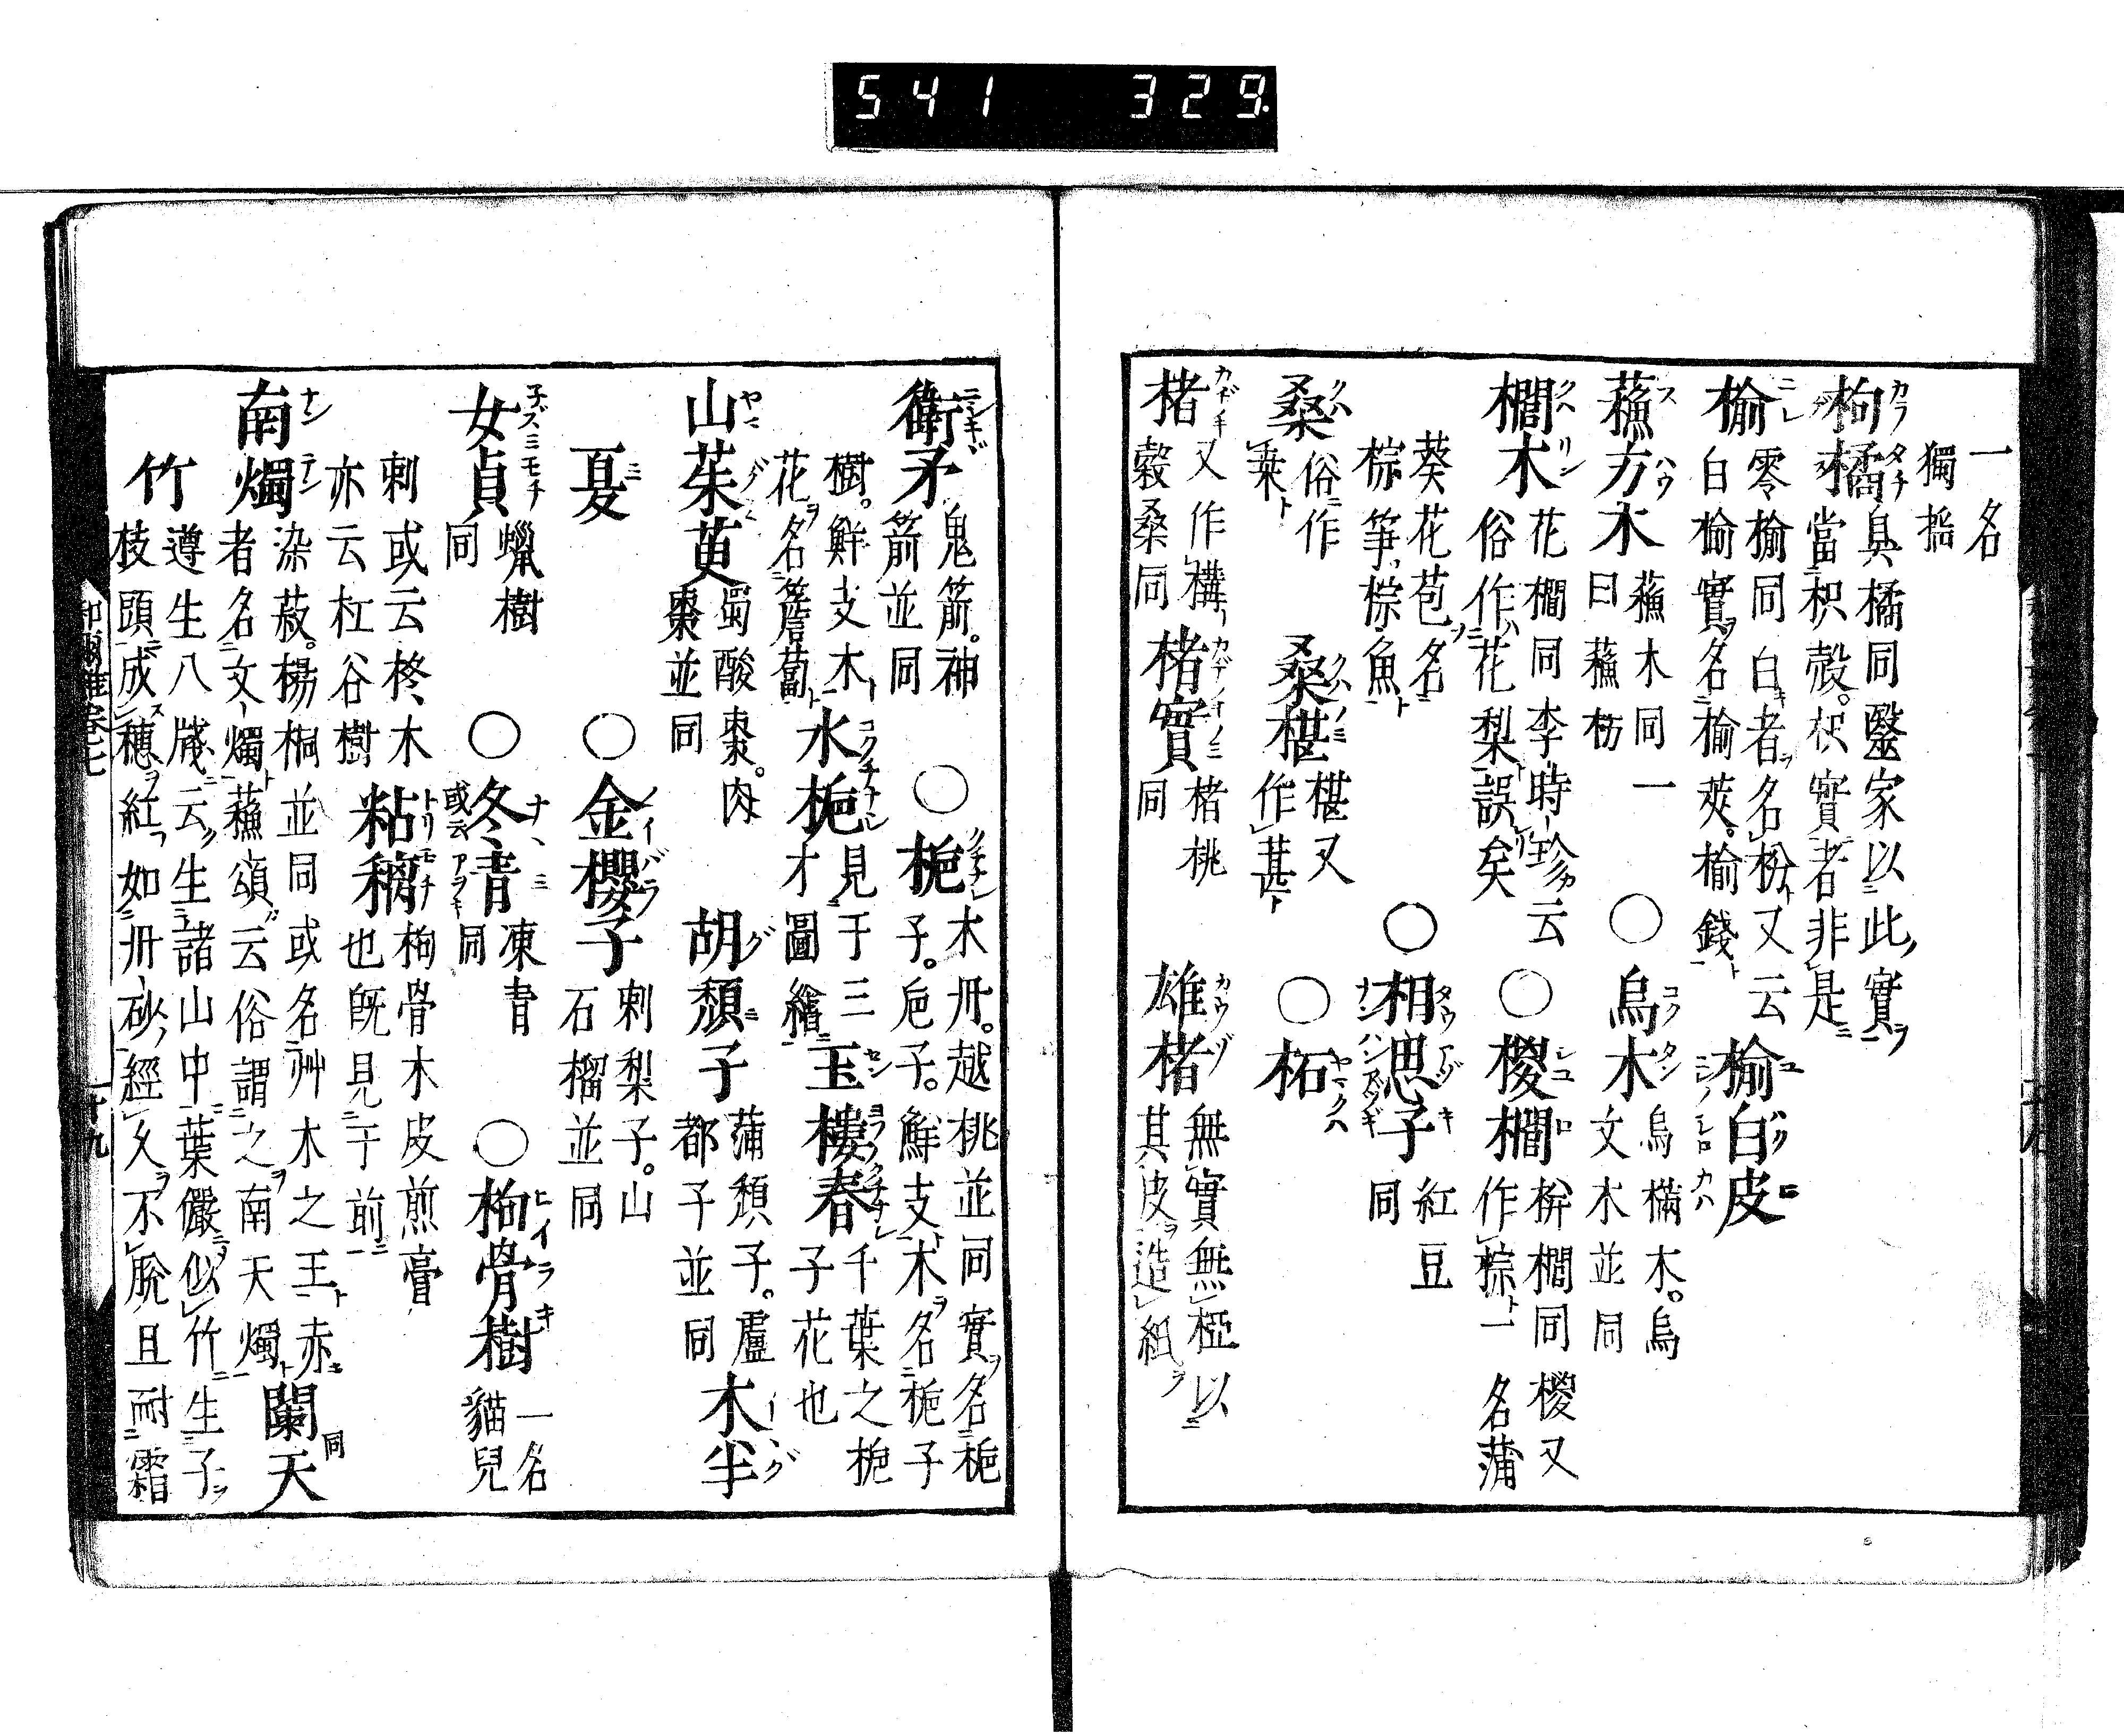 541 329
一名
獨揺
枸橘 臭橘同醫家以此實
當枳殻。枳實者非是
榆 零榆同白者名枌又云
白榆實名榆莢。榆錢
榆白皮
蘓方木 蘓木同一
曰蘓枋
○烏木 烏樠木。烏
文木並同
櫚木 花櫚同李時珍云
俗作花梨誤矣
○椶櫚 栟櫚同椶又
作棕一名蒲
葵花苞名
棕筍棕魚
○相思子 紅豆
同
桑 俗作
桒
桑椹 椹又
作葚
○柘
楮 又作構
穀桑同
楮實 楮桃
同
雄楮 無實無椏以
其皮造紙
衛矛 鬼箭。神
箭並同
○梔 木丹。越桃並同實名梔
子。巵子。鮮支木名梔子
樹。鮮支木
花名簷蔔
水梔 見于三
才圖繪
玉樓春 千葉之梔
子花也
山茱萸 蜀酸棗。肉
棗並同
胡頹子 蒲頹子。盧
都子並同
木半
夏
○金櫻子 刺梨子。山
石榴並同
女貞 蠟樹
同
○冬青 凍青
同
○枸骨樹 一名
貓兒
刺或云柊木
亦云杠谷樹
粘䊨 枸骨木皮煎膏
也既見于前
南燭 染菽。楊桐並同或名艸木之王赤
者名文燭蘓頌云俗謂之南天燭
闌天 同
竹 遵生八牋云生諸山中葉儼似竹生子
枝頭成穗紅如丹砂經久不脫且耐霜
和爾雅卷七
十九